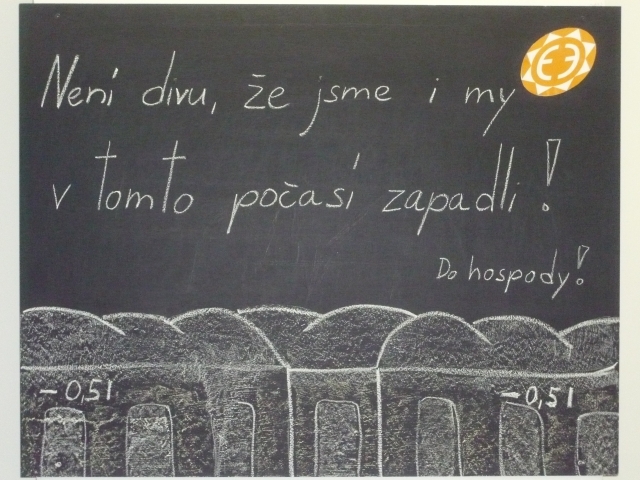 Není divu, že jsme i my
v tomto počasí zapadli!
Do hospody!
-0,51
-0,51